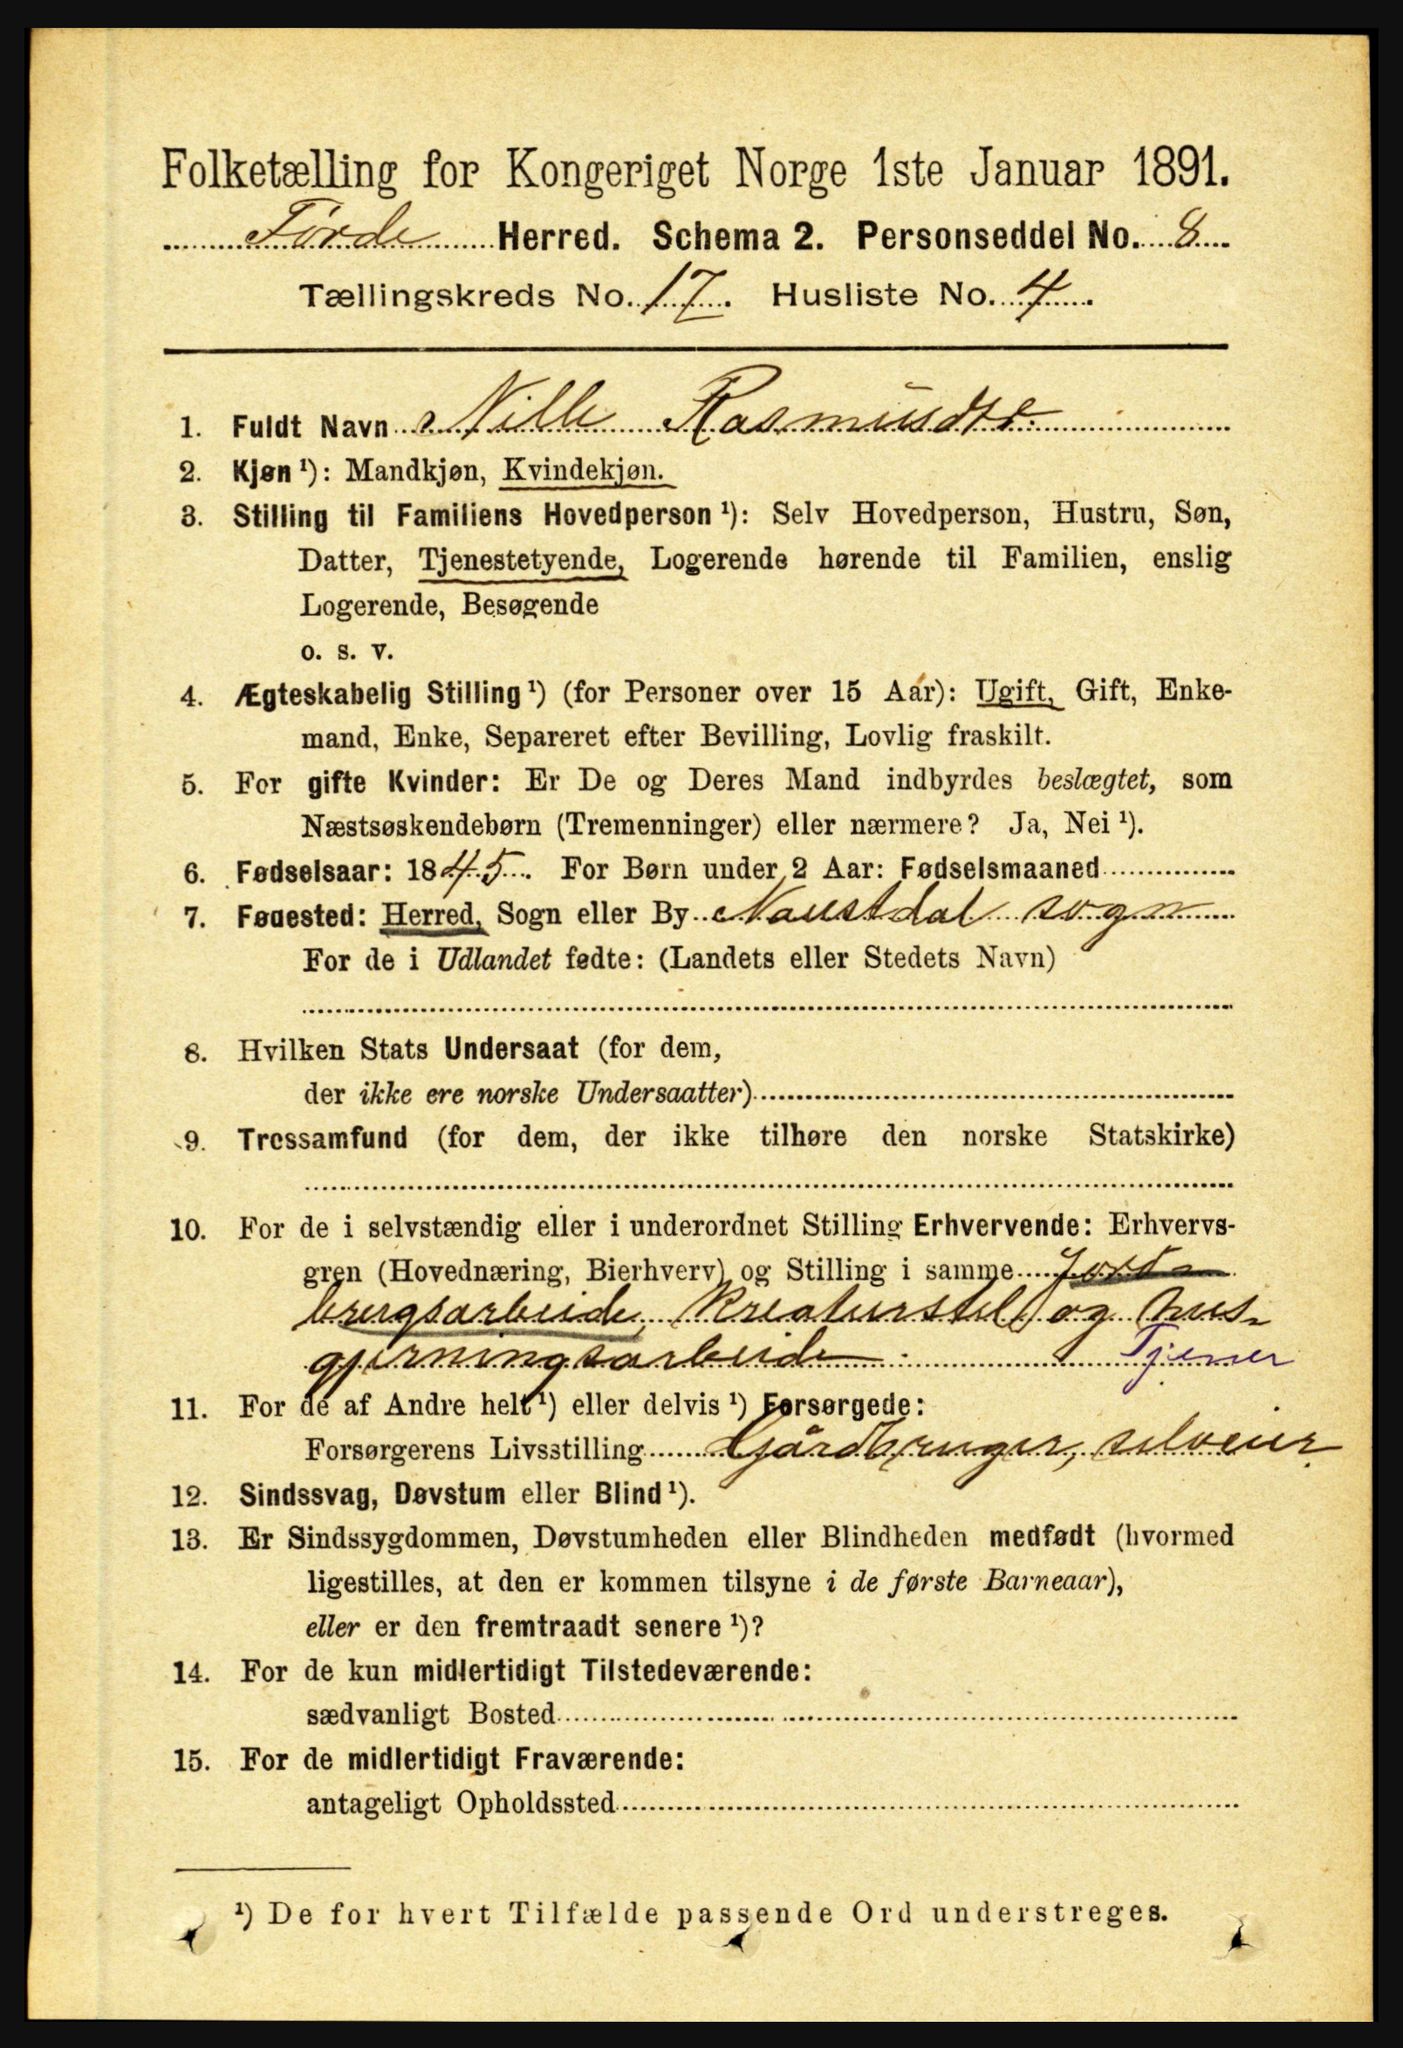 Folketælling for Kongeriget Norge 1ste Januar 1891.
Førde Herred. Schema 2. Personseddel No. 8
Tællingskreds No. 17. Husliste No. 4.
1. Fuldt Navn Nille Rasmusdtr.
2. Kjøn ¹): Mandkjøn, Kvindekjøn.
3. Stilling til Familiens Hovedperson ¹): Selv Hovedperson, Hustru, Søn,
Datter, Tjenestetyende, Logerende hørende til Familien, enslig
Logerende, Besøgende
o. s. v.
4. Ægteskabelig Stilling ¹) (for Personer over 15 Aar): Ugift, Gift, Enke-
mand, Enke, Separeret efter Bevilling, Lovlig fraskilt.
5. For gifte Kvinder: Er De og Deres Mand indbyrdes beslægtet, som
Næstsøskendebørn (Tremenninger) eller nærmere? Ja, Nei ¹).
6. Fødselsaar: 1845. For Børn under 2 Aar: Fødselsmaaned
7. Fødested: Herred, Sogn eller By Naustdal sogn
For de i Udlandet fødte: (Landets eller Stedets Navn)
8. Hvilken Stats Undersaat (for dem,
der ikke ere norske Undersaatter)
9. Trossamfund (for dem, der ikke tilhøre den norske Statskirke)
10. For de i selvstændig eller i underordnet Stilling Erhvervende: Erhvervs-
gren (Hovednæring, Bierhverv) og Stilling i samme Jord-
brugsarbeide, Kreaturstel og hus-
gjerningsarbeide. Tjener
11. For de af Andre helt ¹) eller delvis ¹) Forsørgede:
Forsørgerens Livsstilling Gårdbruger, selveier
12. Sindssvag, Døvstum eller Blind ¹).
13. Er Sindssygdommen, Døvstumheden eller Blindheden medfødt (hvormed
ligestilles, at den er kommen tilsyne i de første Barneaar),
eller er den fremtraadt senere ¹)?
14. For de kun midlertidigt Tilstedeværende:
sædvanligt Bosted
15. For de midlertidigt Fraværende:
antageligt Opholdssted
¹) De for hvert Tilfælde passende Ord understreges.